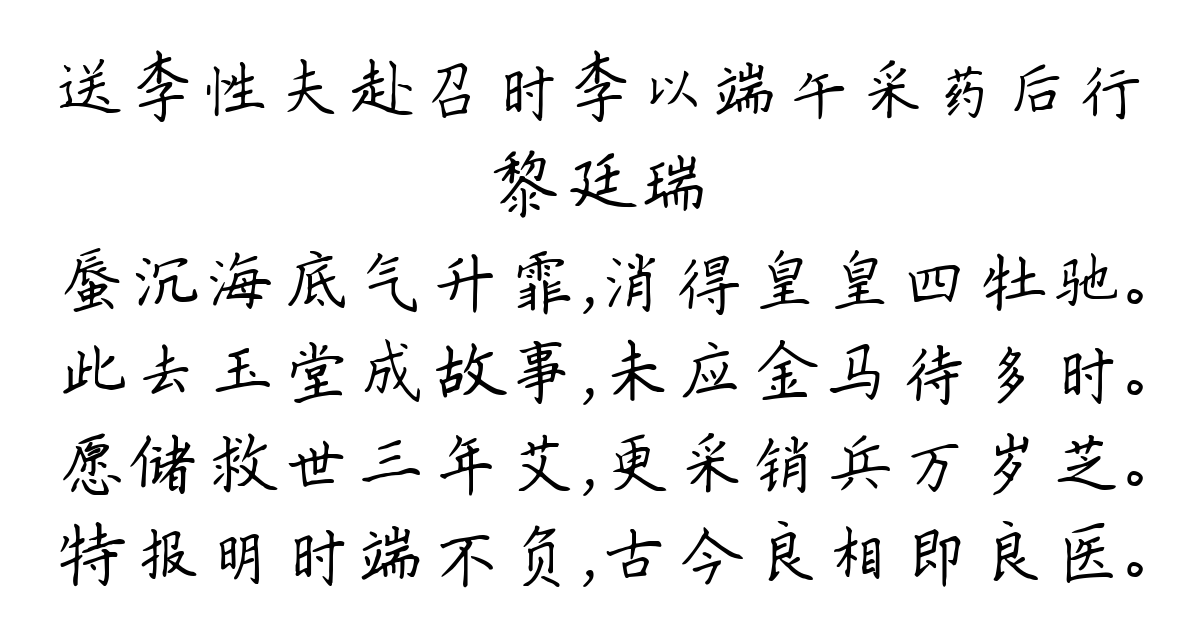 送李性夫赴召时李以端午采药后行
黎廷瑞
蜃沉海底气升霏,消得皇皇四牡驰。
此去玉堂成故事,未应金马待多时。
愿储救世三年艾,更采销兵万岁芝。
特报明时端不负,古今良相即良医。